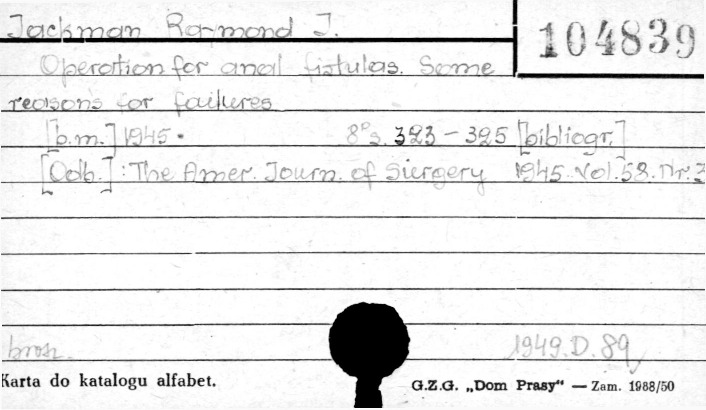 Jackman Raymond J.
104839
Operation for anal fistulas. Some
reasons for failures
[b.m.] 1945. 8° s. 323-325 [bibliogr.]
[Odb.]: The Amer. Journ. of Siurgery 1945. Vol. 58. Nr. 3
brosz. 1949.D.89
Karta do katalogu alfabet. G.Z.G. „Dom Prasy“ — Zam. 1988/50